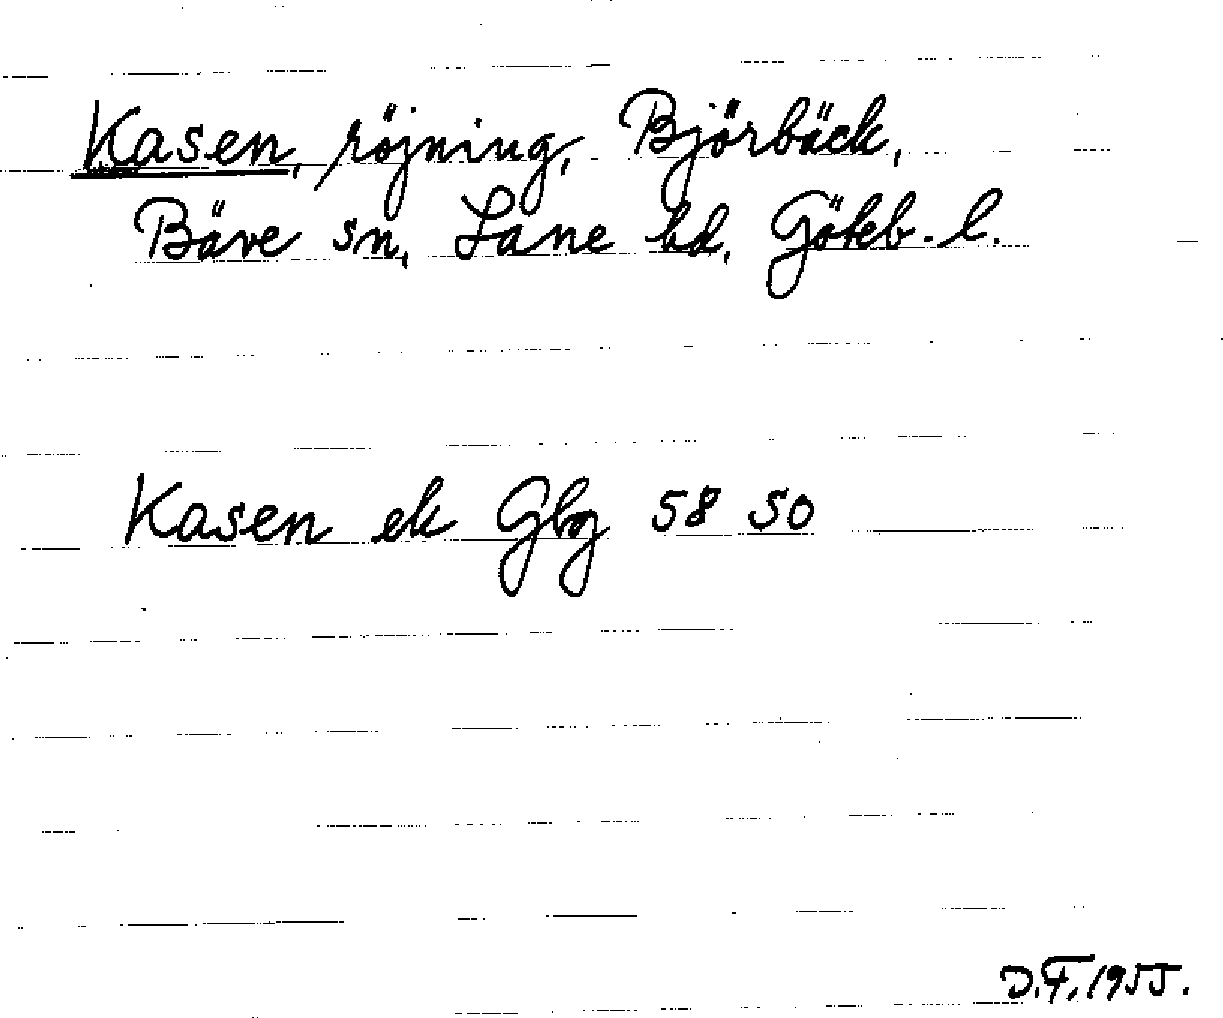 Kasen, röjning, Björbäck,
Bäve sn, Lane hd, Göteb. l.
Kasen ek Gbg 58 50
D.F. 1955.